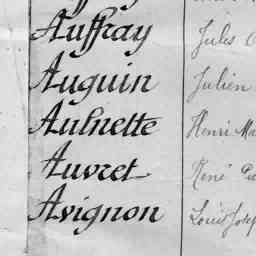 Auffray Jules
Auguin Julien
Aulnette Henri
Auvret René
Avignon Louis